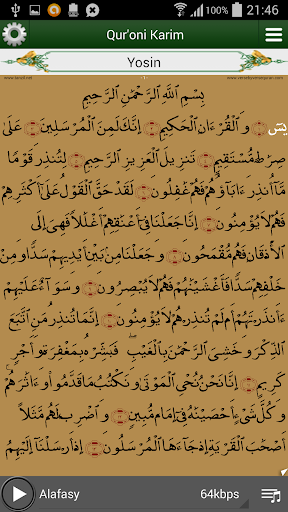 21:46
Qur'oni Karim
Yosin
بِسْمِ ٱللَّهِ ٱلرَّحْمَٰنِ ٱلرَّحِيمِ
يسٓ وَٱلْقُرْءَانِ ٱلْحَكِيمِ إِنَّكَ لَمِنَ ٱلْمُرْسَلِينَ عَلَىٰ
صِرَٰطٍ مُّسْتَقِيمٍ تَنزِيلَ ٱلْعَزِيزِ ٱلرَّحِيمِ لِتُنذِرَ قَوْمًا
مَّآ أُنذِرَ ءَابَآؤُهُمْ فَهُمْ غَٰفِلُونَ لَقَدْ حَقَّ ٱلْقَوْلُ عَلَىٰٓ أَكْثَرِهِمْ
فَهُمْ لَا يُؤْمِنُونَ إِنَّا جَعَلْنَا فِىٓ أَعْنَٰقِهِمْ أَغْلَٰلًا فَهِىَ إِلَى
ٱلْأَذْقَانِ فَهُم مُّقْمَحُونَ وَجَعَلْنَا مِنۢ بَيْنِ أَيْدِيهِمْ سَدًّا وَمِنْ
خَلْفِهِمْ سَدًّا فَأَغْشَيْنَٰهُمْ فَهُمْ لَا يُبْصِرُونَ وَسَوَآءٌ عَلَيْهِمْ
ءَأَنذَرْتَهُمْ أَمْ لَمْ تُنذِرْهُمْ لَا يُؤْمِنُونَ إِنَّمَا تُنذِرُ مَنِ ٱتَّبَعَ
ٱلذِّكْرَ وَخَشِىَ ٱلرَّحْمَٰنَ بِٱلْغَيْبِ ۖ فَبَشِّرْهُ بِمَغْفِرَةٍ وَأَجْرٍ
كَرِيمٍ إِنَّا نَحْنُ نُحْىِ ٱلْمَوْتَىٰ وَنَكْتُبُ مَا قَدَّمُوا۟ وَءَاثَٰرَهُمْ ۚ
وَكُلَّ شَىْءٍ أَحْصَيْنَٰهُ فِىٓ إِمَامٍ مُّبِينٍ وَٱضْرِبْ لَهُم مَّثَلًا
أَصْحَٰبَ ٱلْقَرْيَةِ إِذْ جَآءَهَا ٱلْمُرْسَلُونَ إِذْ أَرْسَلْنَآ إِلَيْهِمُ
Alafasy 64kbps